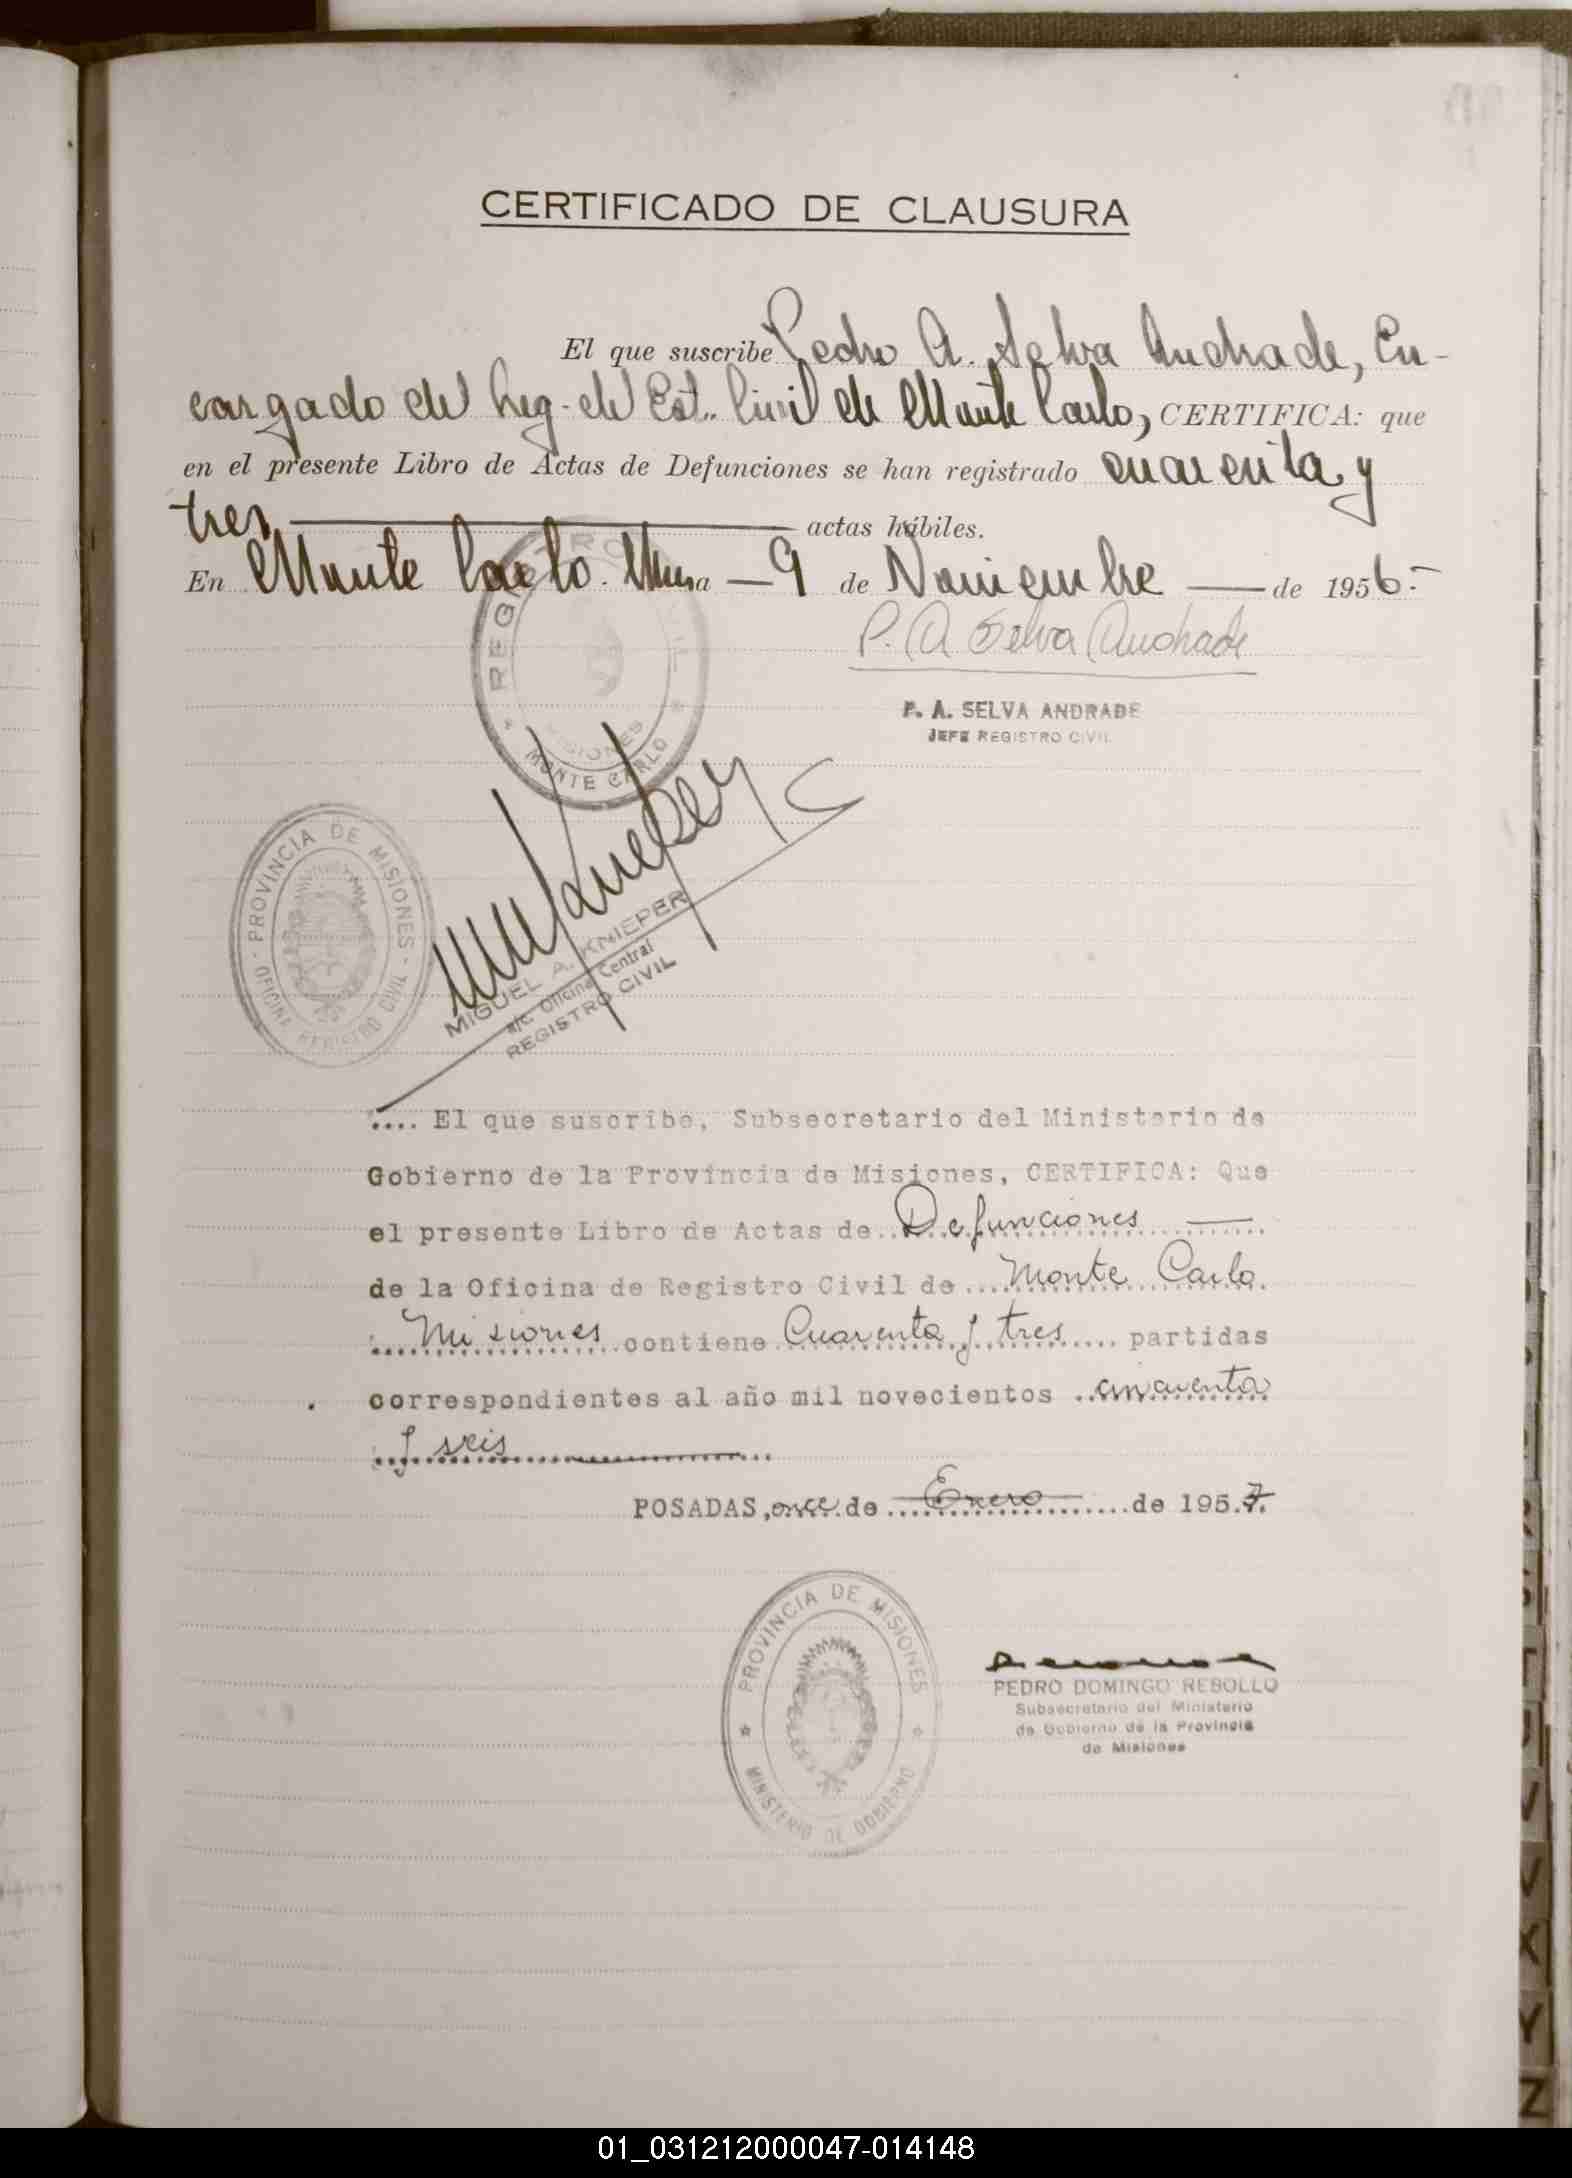 CERTIFICADO DE CLAUSURA
El que suscribe Pedro A. Selva Andrade, En-
cargado del Reg. del Est. Civil de Monte Carlo, CERTIFICA: que
en el presente Libro de Actas de Defunciones se han registrado cuarenta y
tres actas hábiles.
En Monte Carlo. a 9 de Noviembre de 1956.-
P. A. Selva Andrade
P. A. SELVA ANDRADE
JEFE REGISTRO CIVIL
REGISTRO CIVIL
MISIONES
* MONTE CARLO *
PROVINCIA DE MISIONES
- OFICINA REGISTRO CIVIL -
MIGUEL A. KNIEPER
a/c. Oficina Central
REGISTRO CIVIL
.... El que suscribe, Subsecretario del Ministerio de
Gobierno de la Provincia de Misiones, CERTIFICA: Que
el presente Libro de Actas de Defunciones
de la Oficina de Registro Civil de Monte Carlo.
Misiones contiene Cuarenta y tres partidas
correspondientes al año mil novecientos cincuenta
y seis
POSADAS, once de Enero de 1957.
PROVINCIA DE MISIONES
* MINISTERIO DE GOBIERNO *
PEDRO DOMINGO REBOLLO
Subsecretario del Ministerio
de Gobierno de la Provincia
de Misiones
V
X
Y
Z
01_031212000047-014148